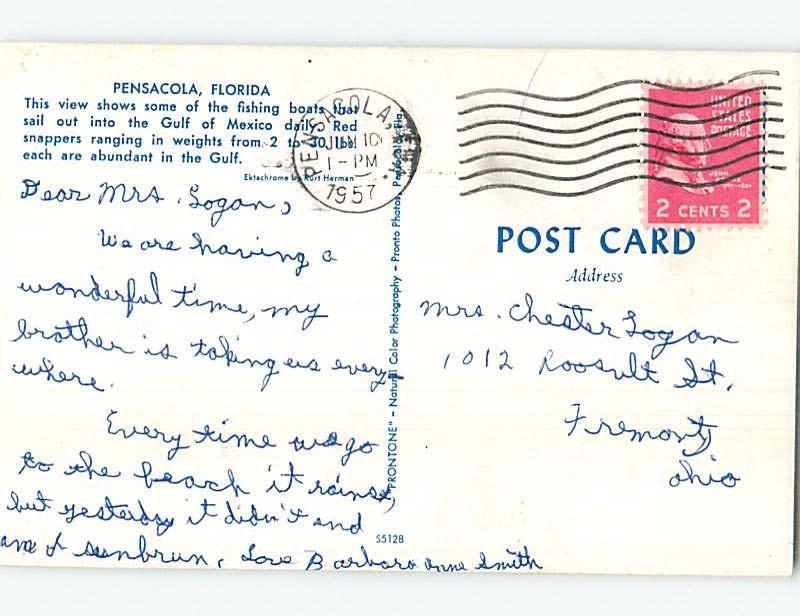 PENSACOLA, FLORIDA
This view shows some of the fishing boats that
sail out into the Gulf of Mexico daily. Red
snappers ranging in weights from 2 to 30
each are abundant in the Gulf.
Ektachrome by Kurt Herman
PENSACOLA,
JUN 10
1-PM
1957
UNITED
STATES
POSTAGE
JOHN
2 CENTS 2
POST CARD
Address
Dear Mrs. Logan,
We are having a
wonderful time, my
brother is taking us every
where.
Every time we go
to the beach it rains,
but yesterday it didn't and
I sunbrun. Love Barbara Anne Smith
"PRONTONE" – Natural Color Photography – Pronto Photos, Pensacola, Fla.
S5128
Mrs. Chester Logan
1012 Roosvult St.
Fremont,
Ohio